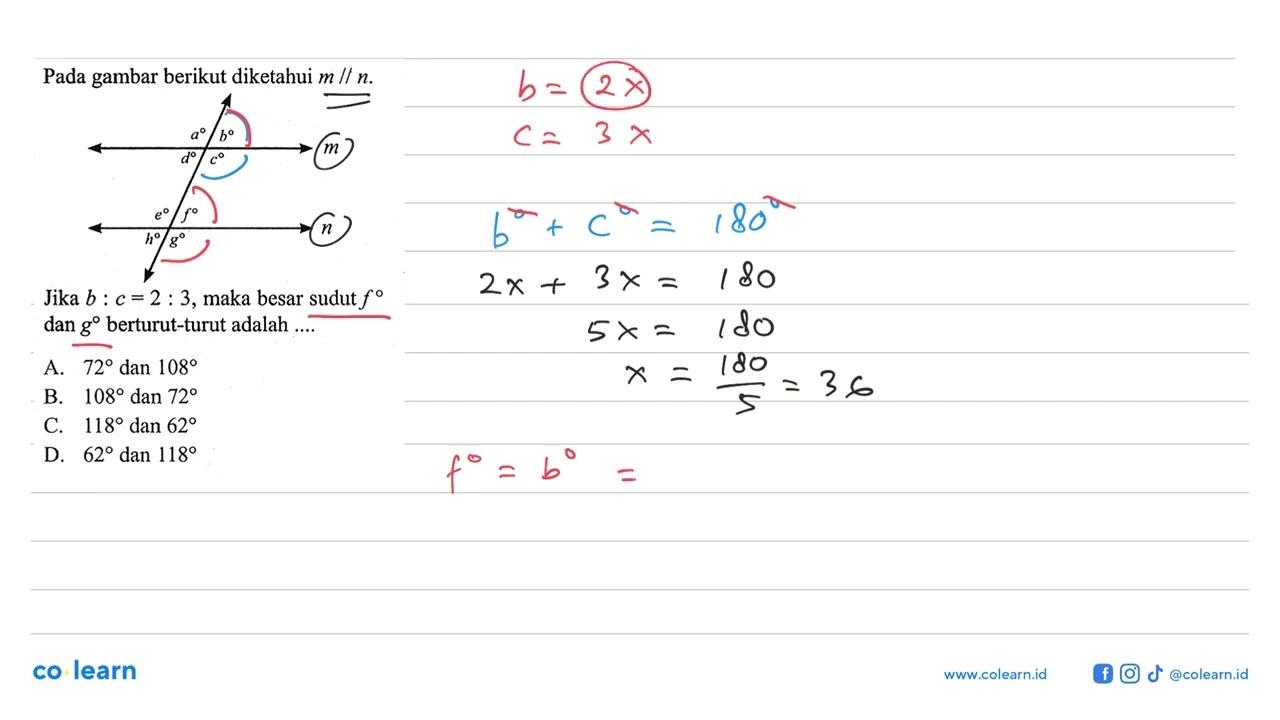 Pada gambar berikut diketahui m // n.
a° b°
m
d° c°
e° f°
n
h° g°
Jika b : c = 2 : 3, maka besar sudut f°
dan g° berturut-turut adalah ....
A. 72° dan 108°
B. 108° dan 72°
C. 118° dan 62°
D. 62° dan 118°
b = 2x
c = 3x
b° + c° = 180°
2x + 3x = 180
5x = 180
x = 180/5 = 36
f° = b° =
co learn
www.colearn.id
@colearn.id